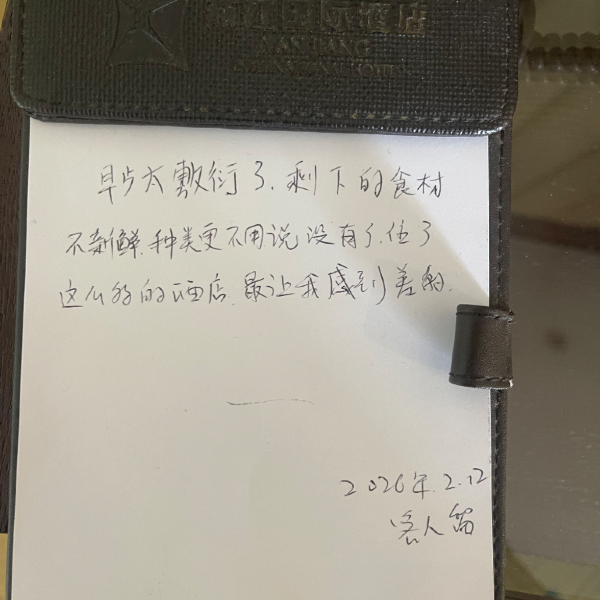 国际酒店
早歺太敷衍了.剩下的食材
不新鲜.种类更不用说没有了.住了
这么多的酒店.最让我感到差的.
2026年.2.12
客人留